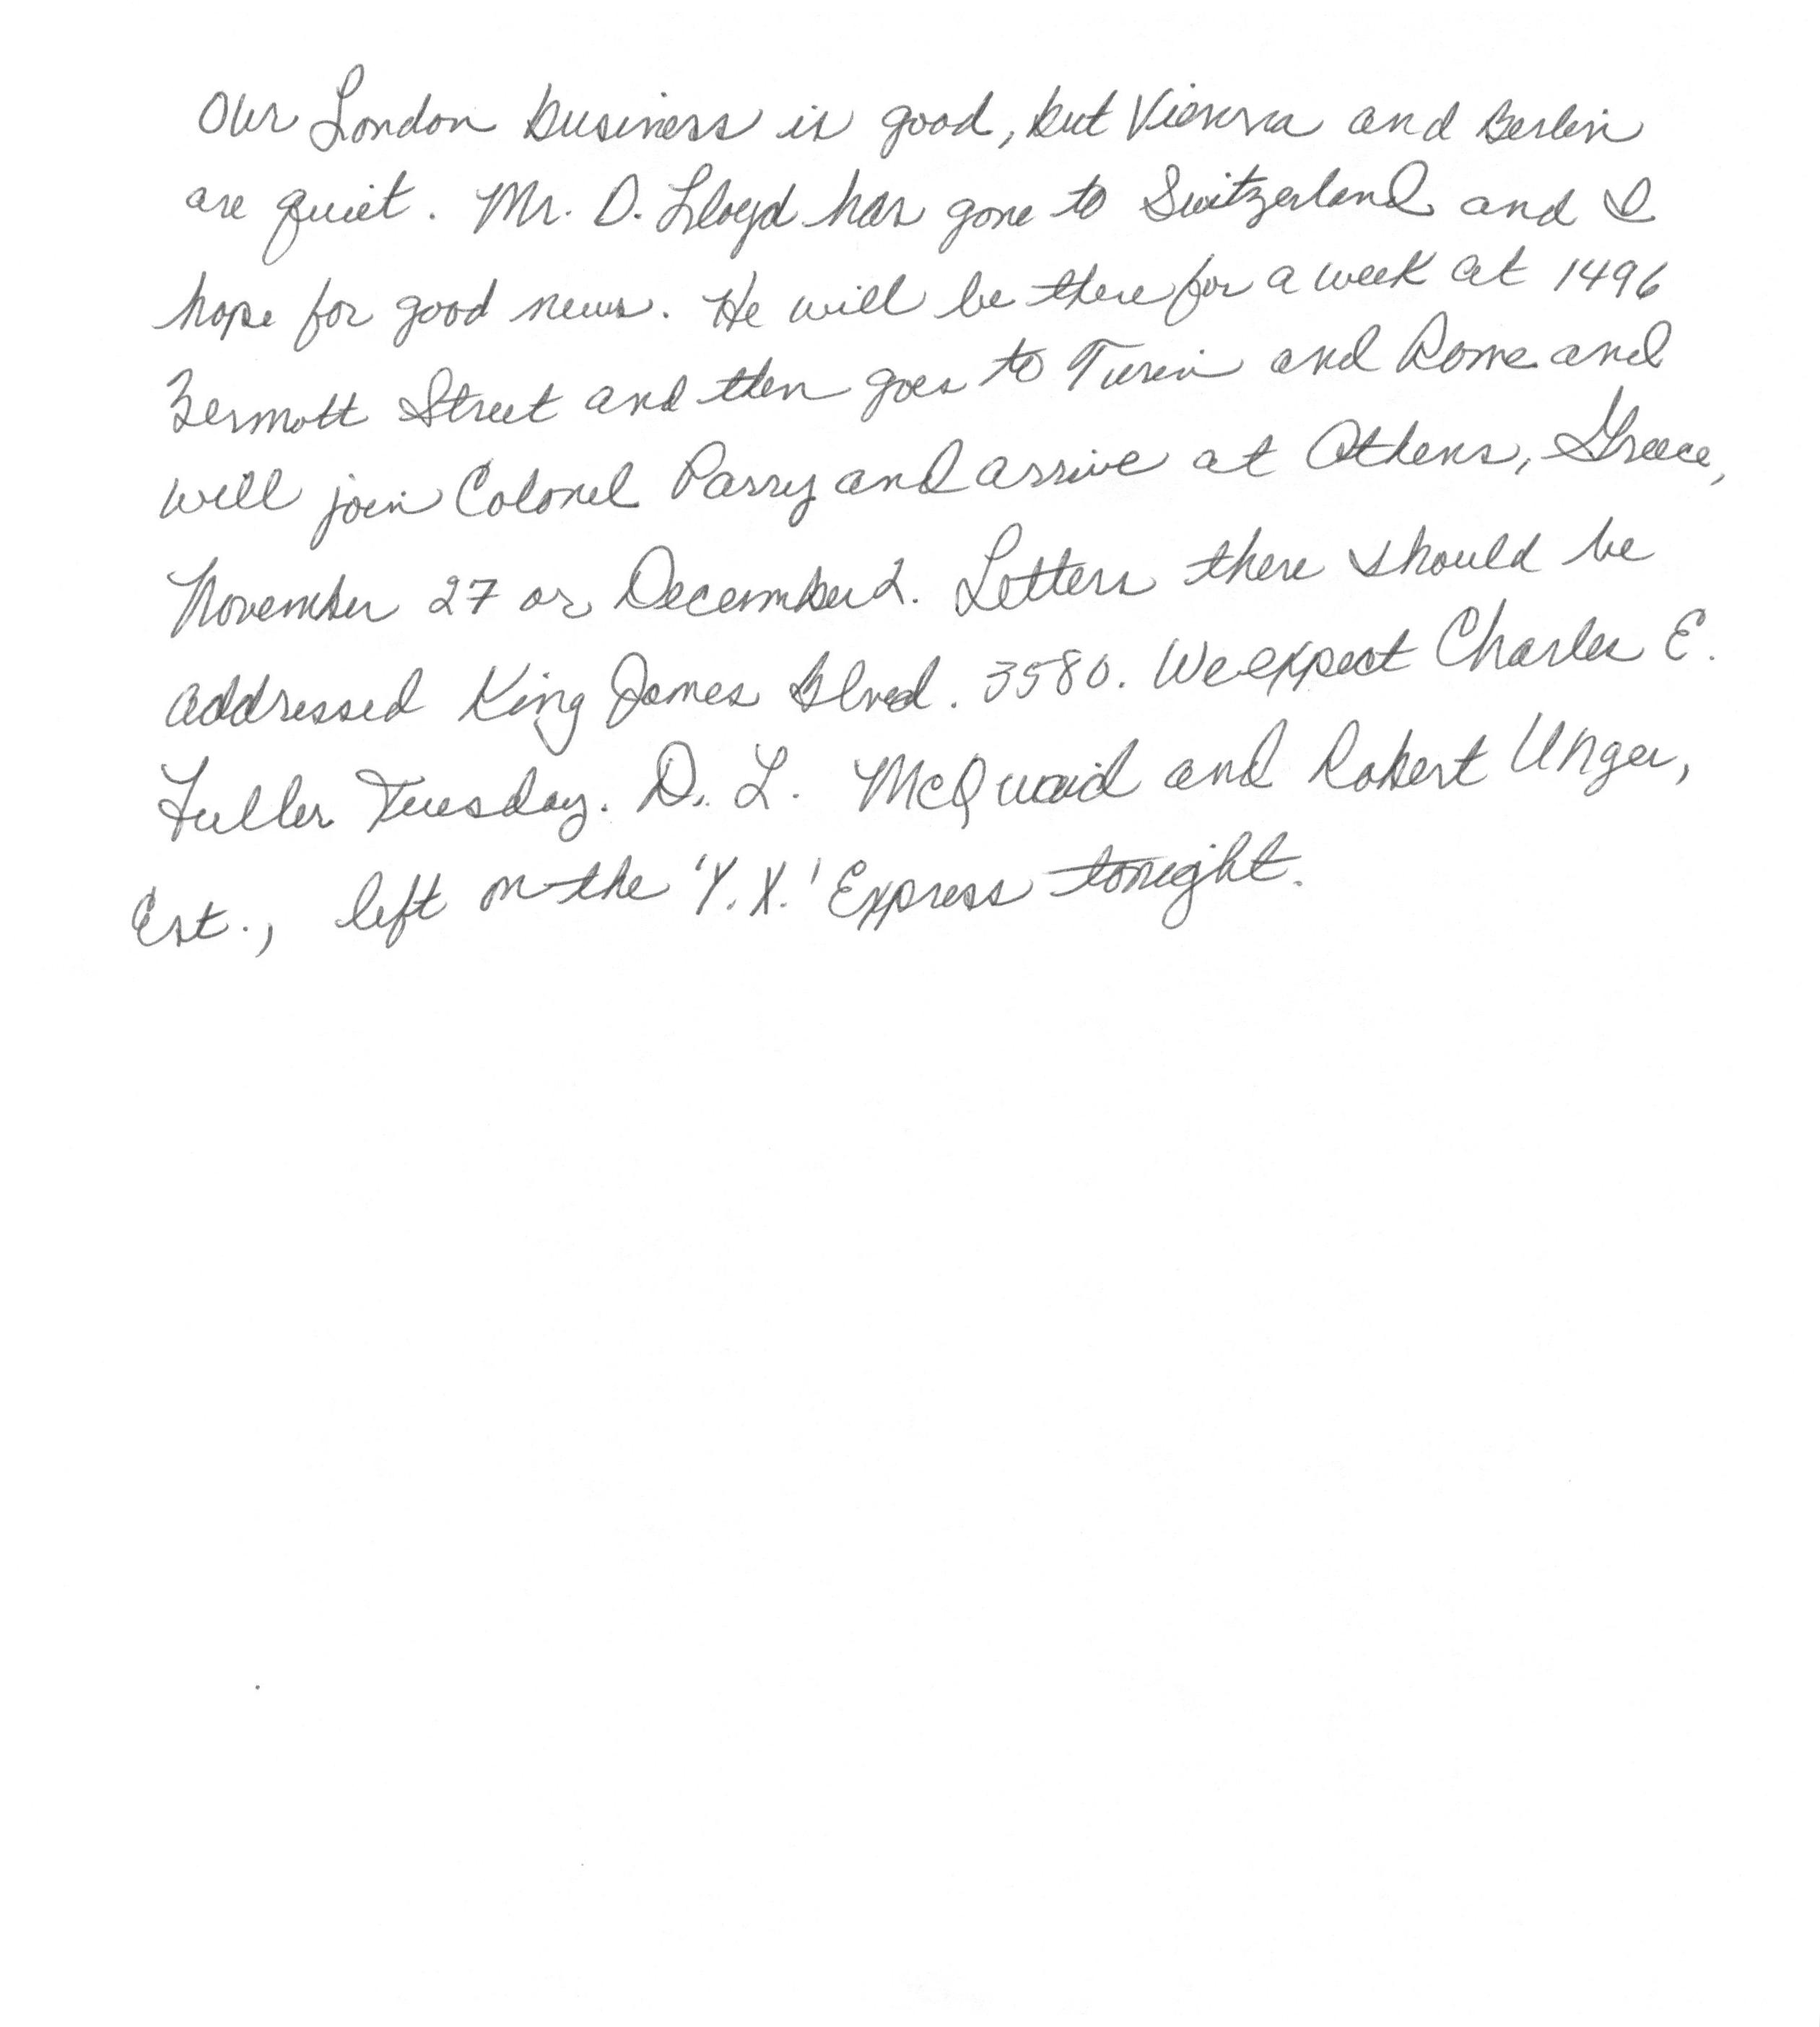 Our London business is good, but Vienna and Berlin
are quiet. Mr. D. Lloyd has gone to Switzerland and I
hope for good news. He will be there for a week at 1496
Zermott Street and then goes to Turin and Rome and
will join Colonel Parry and arrive at Athens, Greece,
November 27 or December 2. Letters there should be
addressed King James Blvd. 3580. We expect Charles E.
Fuller Tuesday. D. L. McQuaid and Robert Unger,
Est., left on the 'Y.X.' Express tonight.